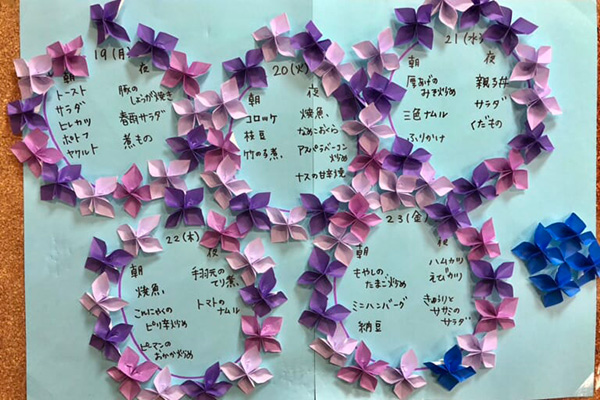 19(月)
朝
トースト
サラダ
ヒレカツ
ポトフ
ヤクルト
夜
豚の
しょうが焼き
春雨サラダ
煮もの
20(火)
朝
コロッケ
枝豆
竹の子煮
夜
焼魚
なめこおくら
アスパラベーコン
炒め
ナスの甘辛焼
21(水)
朝
厚あげの
みそ炒め
三色ナムル
ふりかけ
夜
親子丼
サラダ
くだもの
22(木)
朝
焼魚
こんにゃくの
ピリ辛炒め
ピーマンの
おかか炒め
夜
手羽元の
てり煮
トマトの
ナムル
23(金)
朝
もやしの
たまご炒め
ミニハンバーグ
納豆
夜
ハムカツ
えびカツ
きゅうりと
ササミの
サラダ